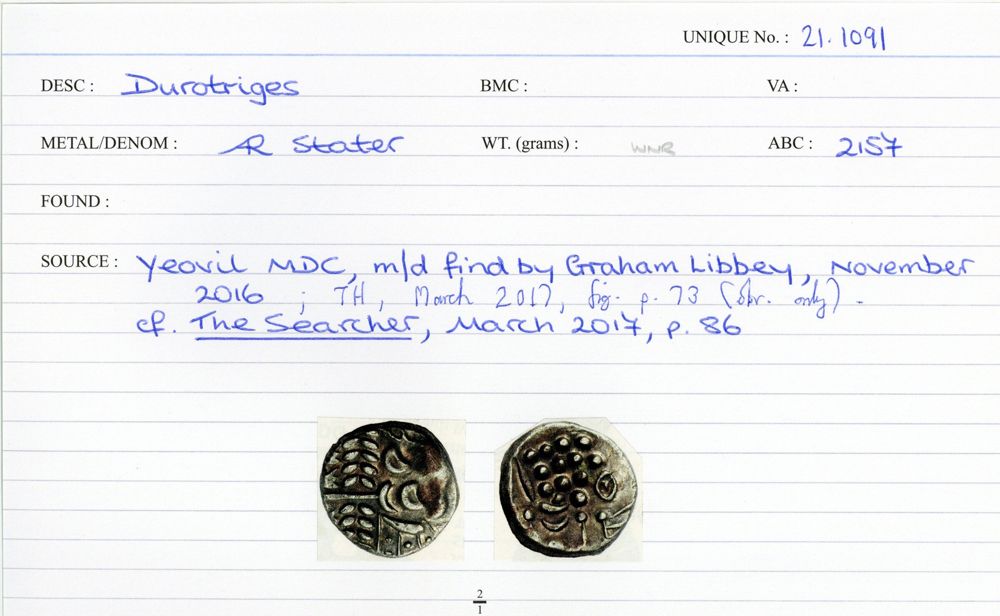 UNIQUE No. : 21.1091
DESC : Durotriges BMC : VA :
METAL/DENOM : AR Stater WT. (grams) : WNR ABC : 2157
FOUND :
SOURCE : Yeovil MDC, m/d find by Graham Libbey, November
2016 ; TH, March 2017, fig. p. 73 (obv. only) .
cf. The Searcher, March 2017, p. 86
2
1